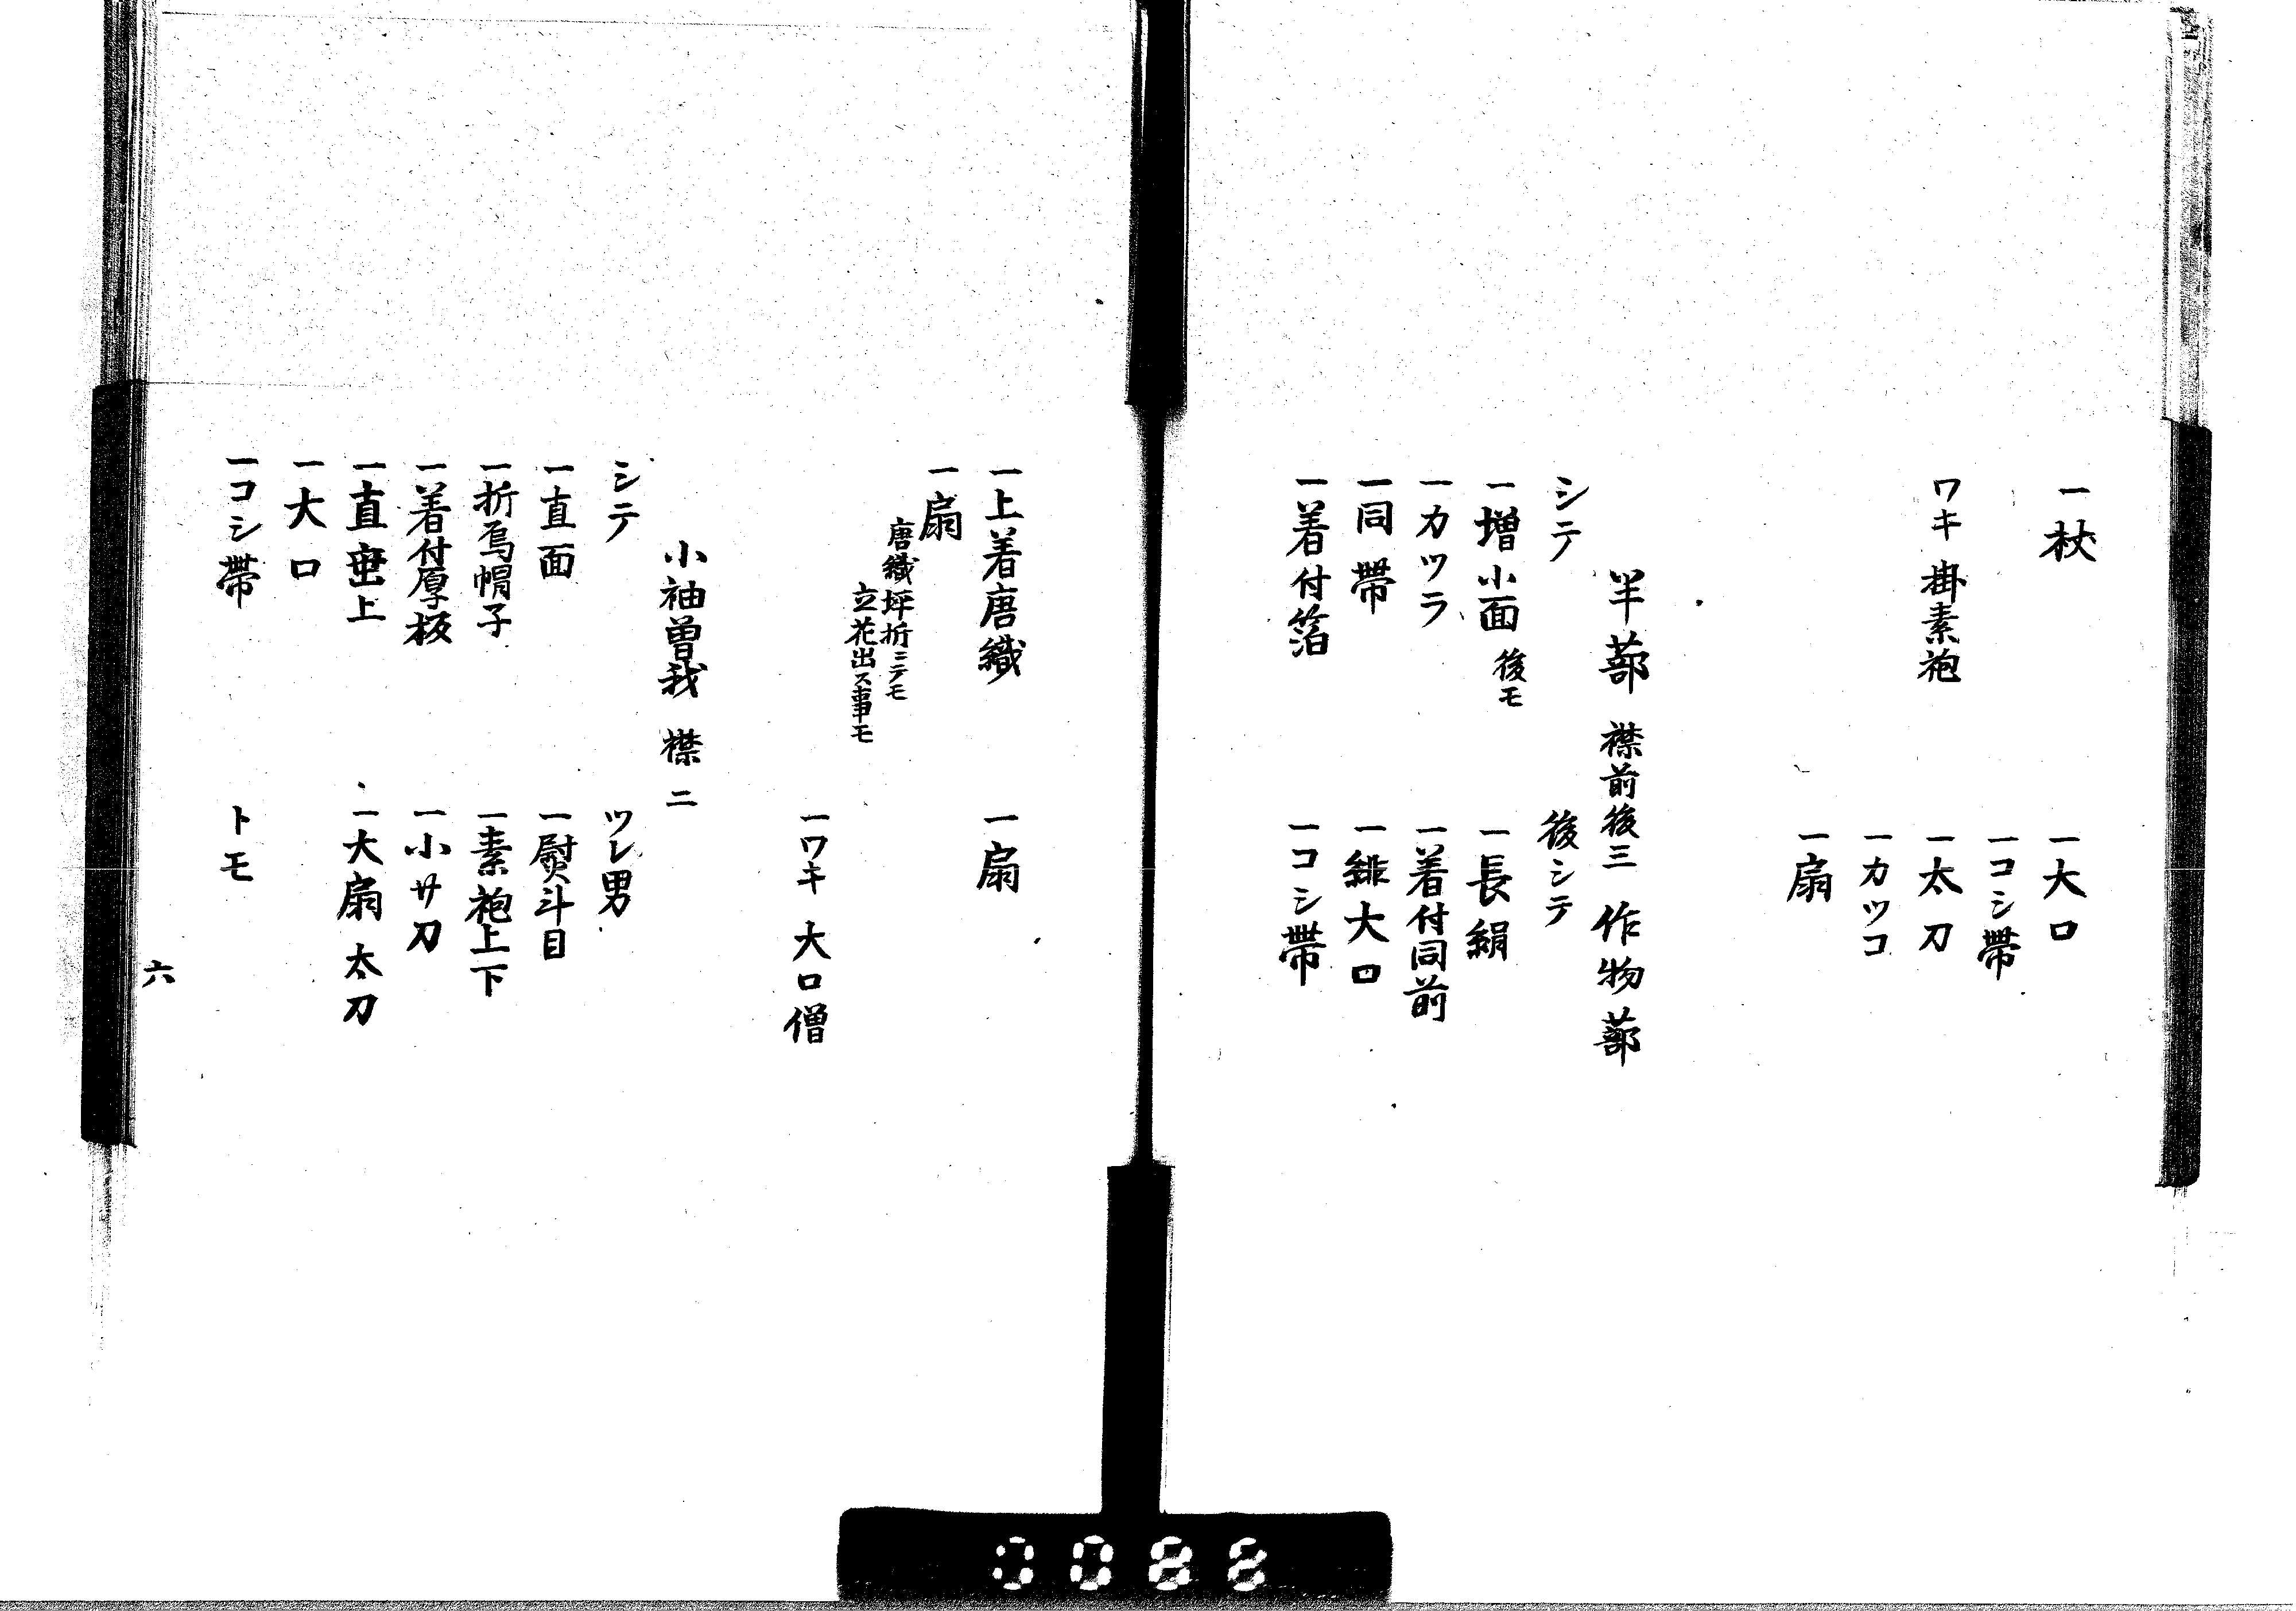 一杖
一大口
一コシ帯
ワキ 掛素袍
一太刀
一カツコ
一扇
半蔀 襟前後三 作物蔀
シテ
後シテ
一増小面 後モ
一長絹
一カツラ
一着付同前
一同帯
一緋大口
一着付箔
一コシ帯
一上着唐織
一扇
一扇
唐織坪折ニテモ
立花出ス事モ
一ワキ 大口僧
小袖曽我 襟二
シテ
ツレ男
一直面
一熨斗目
一折烏帽子
一素袍上下
一着付厚板
一小サ刀
一直垂上
一大扇 太刀
一大口
一コシ帯
トモ
六
0088